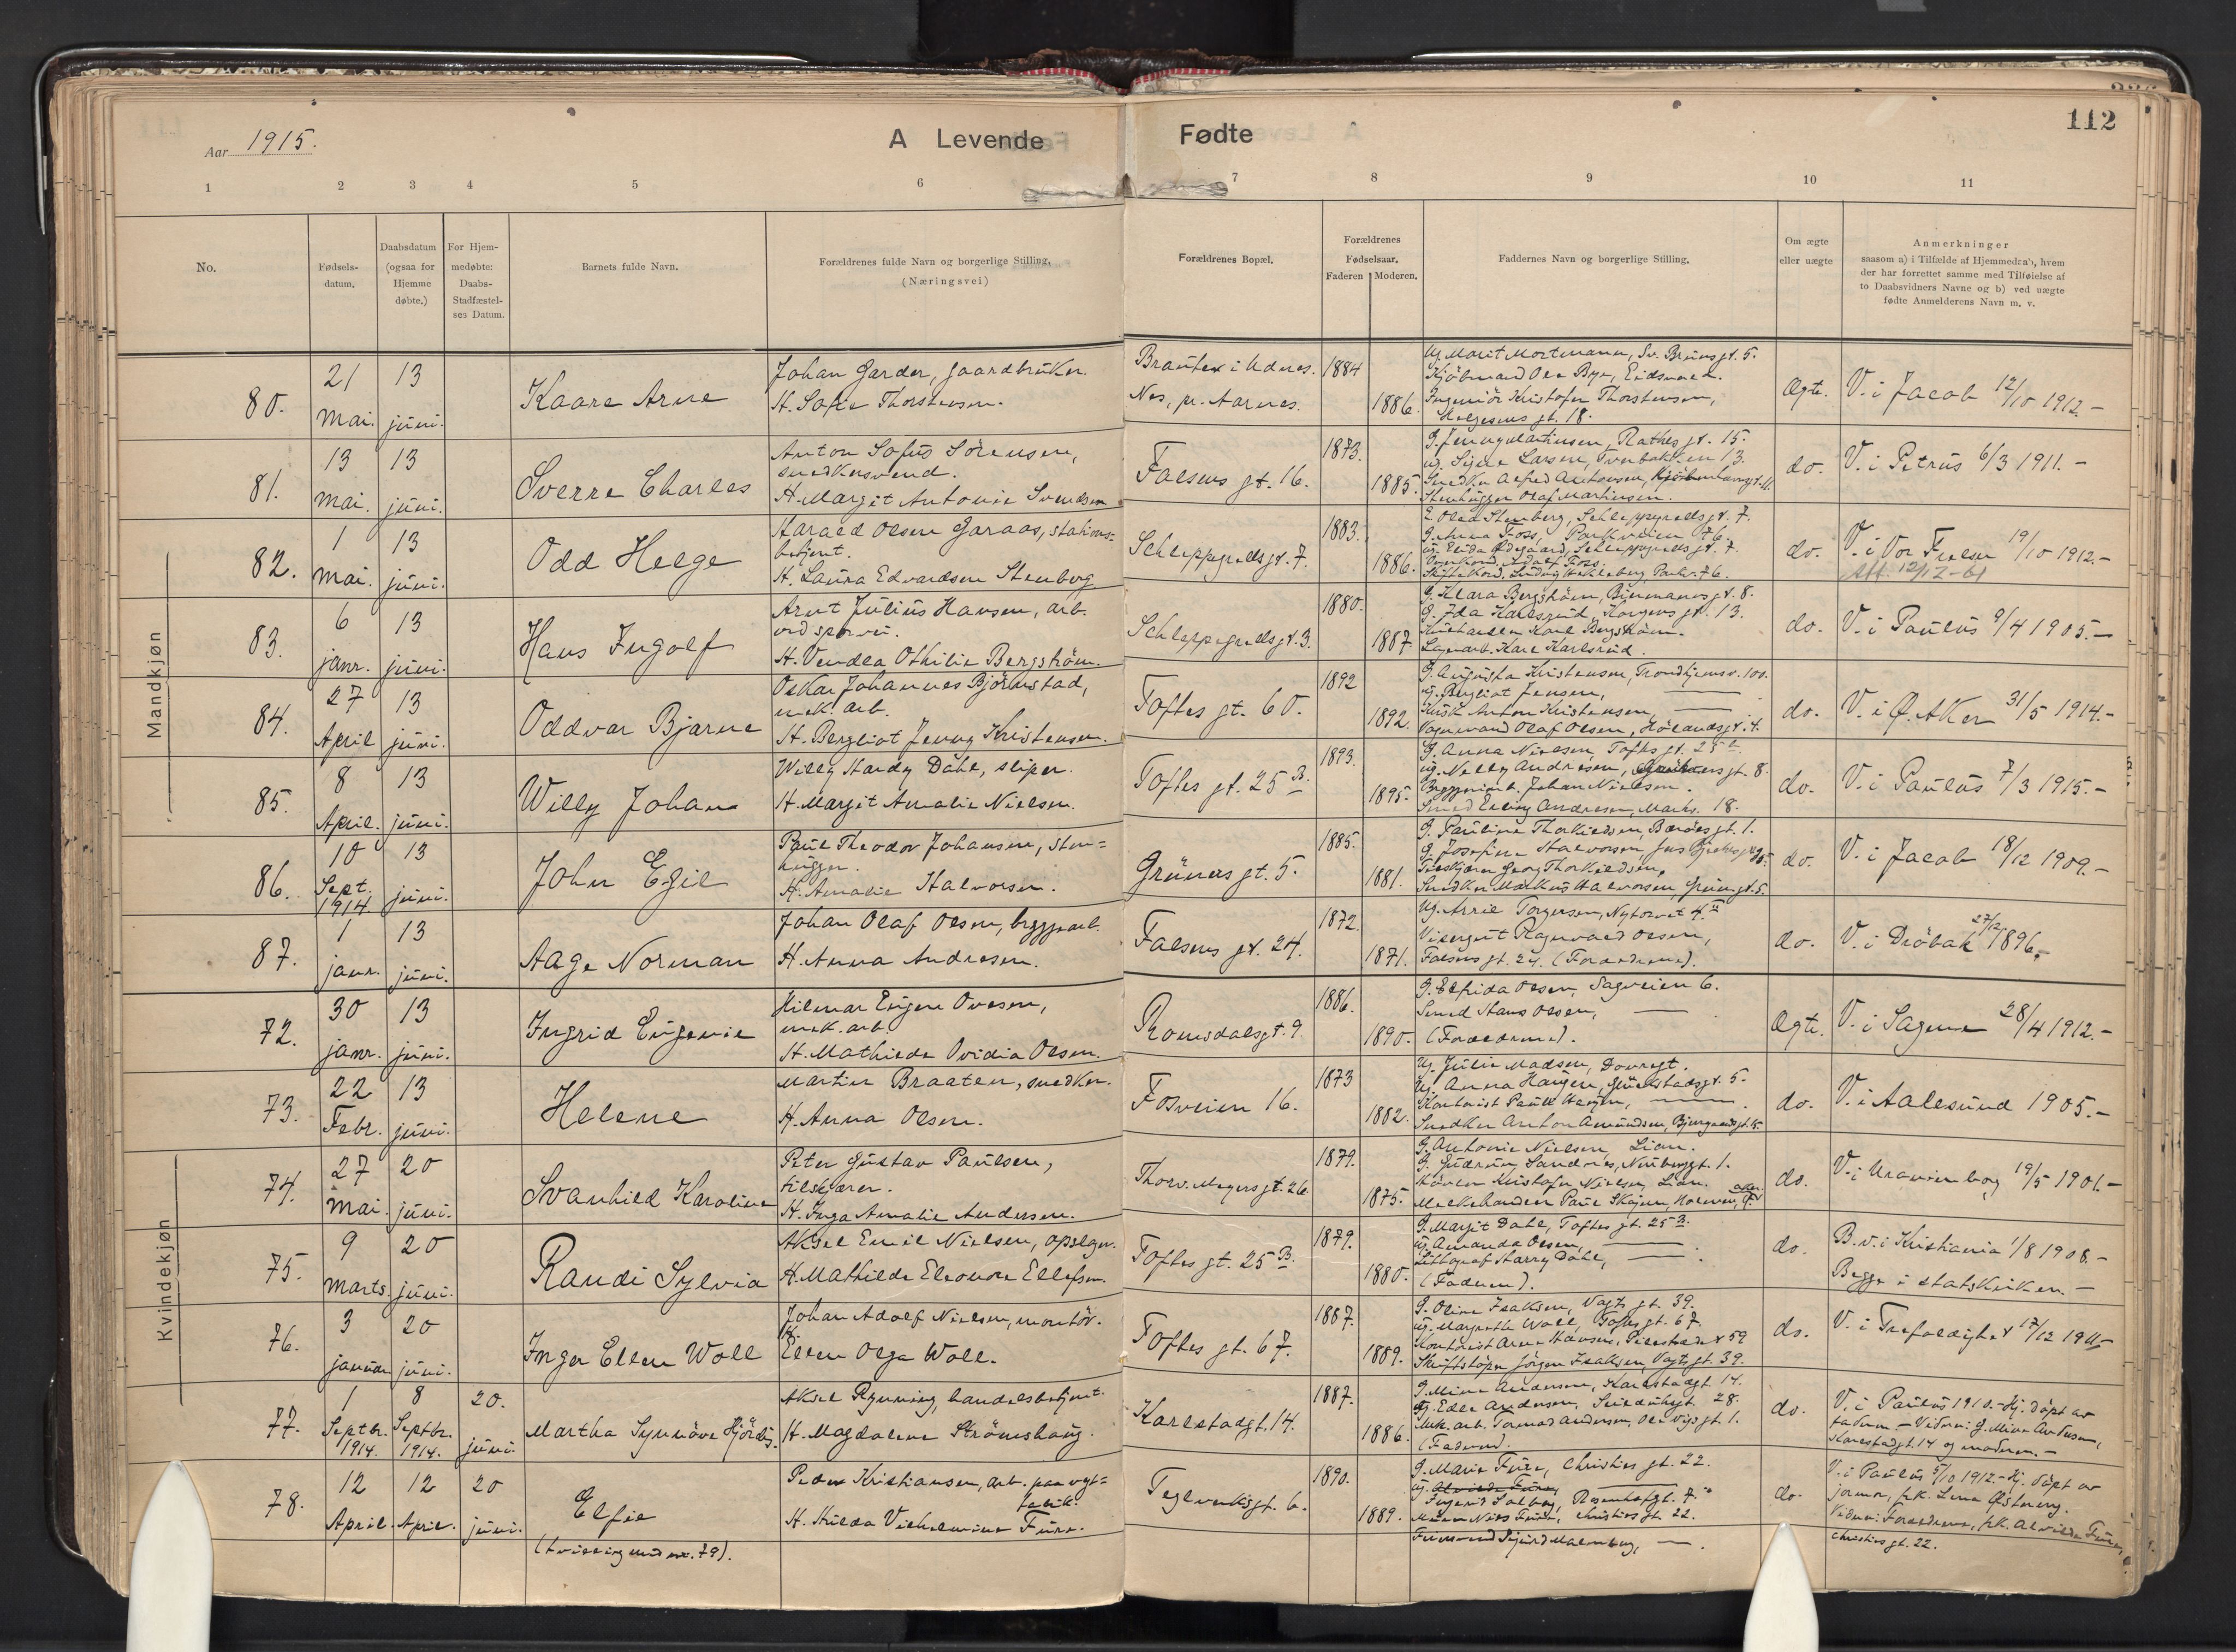 112
Aar 1915.
A Levende Fødte
1 2 3 4 5 6 7 8 9 10 11
No.
Fødsels-
datum.
Daabsdatum
(ogsaa for
Hjemme
døbte.)
For Hjem-
medøbte:
Daabs-
Stadfæstel-
ses Datum.
Barnets fulde Navn.
Forældrenes fulde Navn og borgerlige Stilling.
(Næringsvei)
Forældrenes Bopæl.
Forældrenes
Fødselsaar.
Faderen Moderen.
Faddernes Navn og borgerlige Stilling.
Om ægte
eller uægte
Anmerkninger
saasom a) i Tilfælde af Hjemmedaab, hvem
der har forrettet samme med Tilføielse af
to Daabsvidners Navne og b) ved uægte
fødte Anmelderens Navn m. v.
Mandkjøn
80.
21 mai.
13 juni.
Kaare Arne
Johan Garder, gaardbruker.
H. Sofie Thorstensen.
Nes, pr. Aarnes.
1884
1886.
Ug. Marit Mortmann, Sv. Brunsgt. 5.
Ingeniör Kristofer Thorstensen,
Holgesens gt. 18.
Ægte.
V. i Jacob 12/10 1912.-
81.
13 mai.
13 juni.
Sverre Charles
Anton Sofus Sörensen,
snedkersvend.
H. Margit Antonie Svendsen
Falsens gt. 16.
1873.
1885.
G. Jenny Martinsen, Rathes gt. 15.
ug. Signe Larsen,
Snedker Alfred Antonsen,
Stenhugger Olaf Martinsen.
do.
V. i Petrus 6/3 1911.-
82.
1 mai.
13 juni.
Odd Helge
Harald Olsen Garaas, stations-
betjent.
H. Laura Edvardsen Stenberg
Schleppegrells gt. 7.
1883.
1886.
E. Olea Stenberg, Schleppegrells gt. 7.
G. Anna Foss, Parkveien 76.
do.
V. i Vor Frelser 19/10 1912.-
Att. 12/12-61
83.
6 janr.
13 juni.
Hans Ingolf
Arnt Julius Hansen, arb.
ved sporvei.
H. Vendla Othilie Bergström.
Schleppegrells gt. 3.
1880.
1887.
G. Klara Bergström, Biermanns gt. 8.
G. Ida Karlsrud, Korgens gt. 13.
Karl Bergström.
Lagerarb. Kare Karlsrud.
do.
V. i Paulus 9/4 1905.-
84.
27 April
13 juni.
Oddvar Bjarne
Oskar Johannes Björnstad,
mek. arb.
H. Bergliot Jenny Kristensen.
Toftes gt. 60.
1892
1892.
G. Augusta Kristensen, Trondhjemsv. 100.
ug. Bergliot Jensen,
Anton Kristensen,
Vognmand Olaf Olsen, Hölandsgt. 4.
do.
V. i Ø. Aker 31/5 1914.-
85.
8 April.
13 juni.
Willy Johan
Willy Hardy Dahl, sliper.
H. Margit Amalie Nielsen.
Toftes gt. 25 B.
1893.
1895.
G. Anna Nielsen, Toftes gt. 25 B.
ug. Nelly Andresen, gt. 8.
Johan Nielsen.
Smed Erling Andresen, Markv. 18.
do.
V. i Paulus 7/3 1915.-
86.
10 Sept. 1914.
13 juni.
John Egil
Paul Theodor Johansen, sten-
hugger.
H. Amalie Halvorsen.
Grüners gt. 5.
1885.
1881.
G. Pauline Thorkildsen, gt. 1.
G. Josefine Halvorsen
Georg Thorkildsen,
Snedker Markus Halvorsen, Grüners gt. 5.
do.
V. i Jacob 18/12 1909.-
87.
1 janr.
13 juni.
Aage Norman
Johan Olaf Olsen, bryggearb.
H. Anna Andresen.
Falsens gt. 24.
1872.
1871.
Ug. Arril Torgersen, Nytorvet 4 II
Visergut Ragnvald Olsen,
Falsens gt. 24. (Forældrene).
do.
V. i Dröbak 27/12 1896.
Kvindekjøn
72.
30 janr.
13 juni.
Ingrid Eugenie
Hilmar Eugen Ovesen,
mek. arb.
H. Mathilde Ovidia Olsen.
Romsdalsgt. 9.
1886.
1890.
G. Elfrida Olsen, Sagveien 6.
Smed Hans Olsen,
(Forældrene).
Ægte.
V. i Sagene 28/4 1912.-
73.
22 Febr.
13 juni.
Helene
Martin Braaten, snedker.
H. Anna Olsen.
Fosveien 16.
1873
1882.
Ug. Julie Madsen, Dovregt.
Ug. Anna Haugen, gt. 5.
Kontorist Paul Haugen,
Snedker Anton Amundsen,
do.
V. i Aalesund 1905.-
74.
27 mai.
20 juni.
Svanhild Karoline
Peter Gustav Paulsen,
tilskjærer.
H. Inga Amalie Andersen.
Thorv. Meyers gt. 26.
1879.
1875.
G. Antonie Nielsen, Lian.
G. Gudrun Sandnes, gt. 1.
Kristofer Nielsen, Lian.
Melkehandler Paul
do.
V. i Uranienborg 19/5 1901.-
75.
9 marts.
20 juni.
Randi Sylvia
Aksel Emil Nielsen, opslger.
H. Mathilde Eleonore Ellefsen.
Toftes gt. 25 B.
1879.
1880.
G. Margit Dahl, Toftes gt. 25 B.
ug. Amanda Olsen,
Littograf Harry Dahl,
(Faderen).
do.
B. v. i Kristiania 1/8 1908.-
Begge i statskirken.-
76.
3 januar
20 juni.
Inger Ellen Woll
Johan Adolf Nielsen, montör.
H.
Ellen Olga Woll.
Toftes gt. 67.
1887.
1889.
G. Oline Isaksen, Vogts gt. 39.
ug. Margrethe Woll, Toftes gt. 67.
Kontorist Arne Hansen, 59
Skriftstöper Jörgen Isaksen, Vogts gt. 39.
do.
V. i Trefoldighet 17/12 1911-
77.
1 Septbr. 1914.
8 Septbr. 1914.
20. juni.
Martha Synnöve Hjördis.
Aksel Rynning, handelsbetjent.
H. Magdalene Strömshaug.
Karlstadgt. 14.
1887.
1886.
G. Mina Andersen, Karlstadgt. 14.
Ug. Edle Andersen, 28.
Mek. arb. Tormod Andersen, gt. 1.
(Faderen).
do.
V. i Paulus 1910.- Hj. döpt av
faderen - Vidner: G. Mina Andersen,
Karlstadgt. 14 og moderen.-
78.
12 April.
12 April.
20 juni.
Elfie
(tvilling med nr. 79).
Peder Kristiansen, arb. paa
fabrik.
H. Hilda Vilhelmine Furu.
Teglverksgt. 6.
1890.
1889.
G. Marie Furu, Christies gt. 22.
ug. Alvilde Furu,
Ingerid Solberg, Rosenhofgt. 7.
Nils Furu, Christies gt. 22.
Sigurd Malmberg,
do.
V. i Paulus 5/10 1912.- Hj. döpt av
jormor, frk. Lina Østereng.
Vidner: Forældrene, frk. Alvilde Furu,
Christies gt. 22.